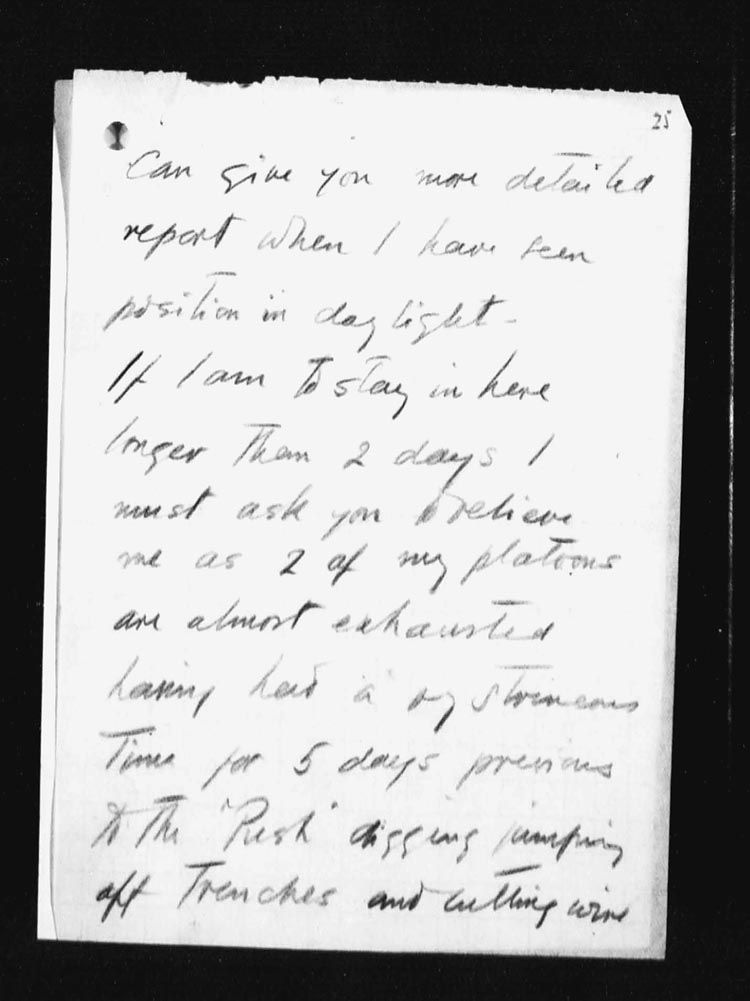 25
Can give you more detailed
report when I have seen
position in daylight -
If I am to stay in here
longer than 2 days I
must ask you to relieve
me as 2 of my platoons
are almost exhausted
having had a vy strenuous
time for 5 days previous
to the "Push" digging jumping
off trenches and cutting wire